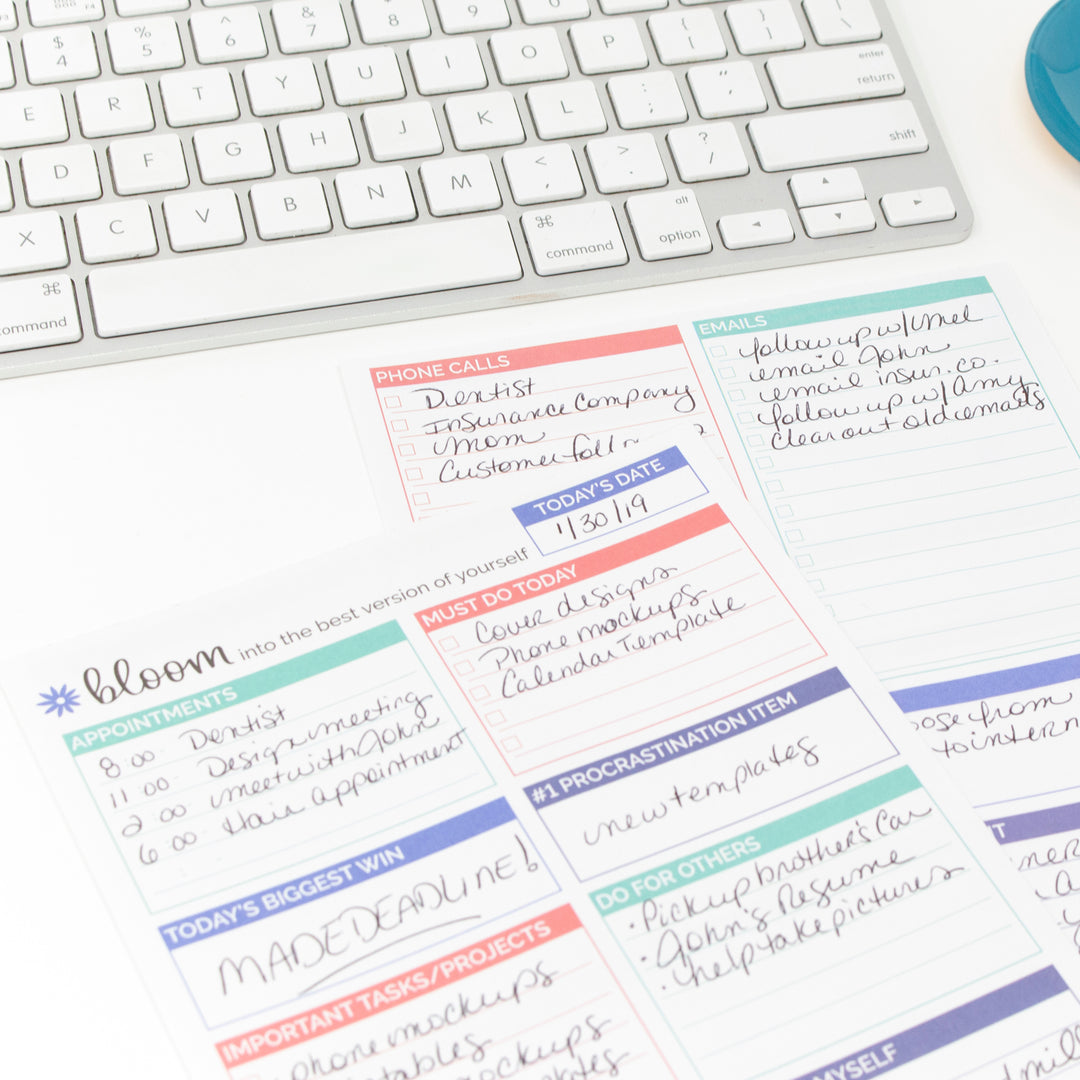 $ 4
% 5
^ 6
& 7
* 8
9
E R T Y U I O P { [ } ] | \
enter
return
D F G H J K L : ; " '
shift
X C V B N M < , > . ? /
⌘
command
⌘
command
alt
option
PHONE CALLS
Dentist
Insurance Company
Mom
Customer foll
EMAILS
follow up w/ Mel
email John
email insur. co.
follow up w/ Amy
clear out old emails
TODAY'S DATE
1/30/19
bloom into the best version of yourself
APPOINTMENTS
8:00 Dentist
11:00 Design meeting
2:00 meet with John
6:00 Hair appointment
TODAY'S BIGGEST WIN
MADE DEADLINE!
IMPORTANT TASKS/PROJECTS
phone mockups
tables
mockups
MUST DO TODAY
Cover designs
Phone mockups
Calendar Template
#1 PROCRASTINATION ITEM
new templates
DO FOR OTHERS
· Pick up brother's car
· John's Resume
· help take pictures
MYSELF
from
to intern
T